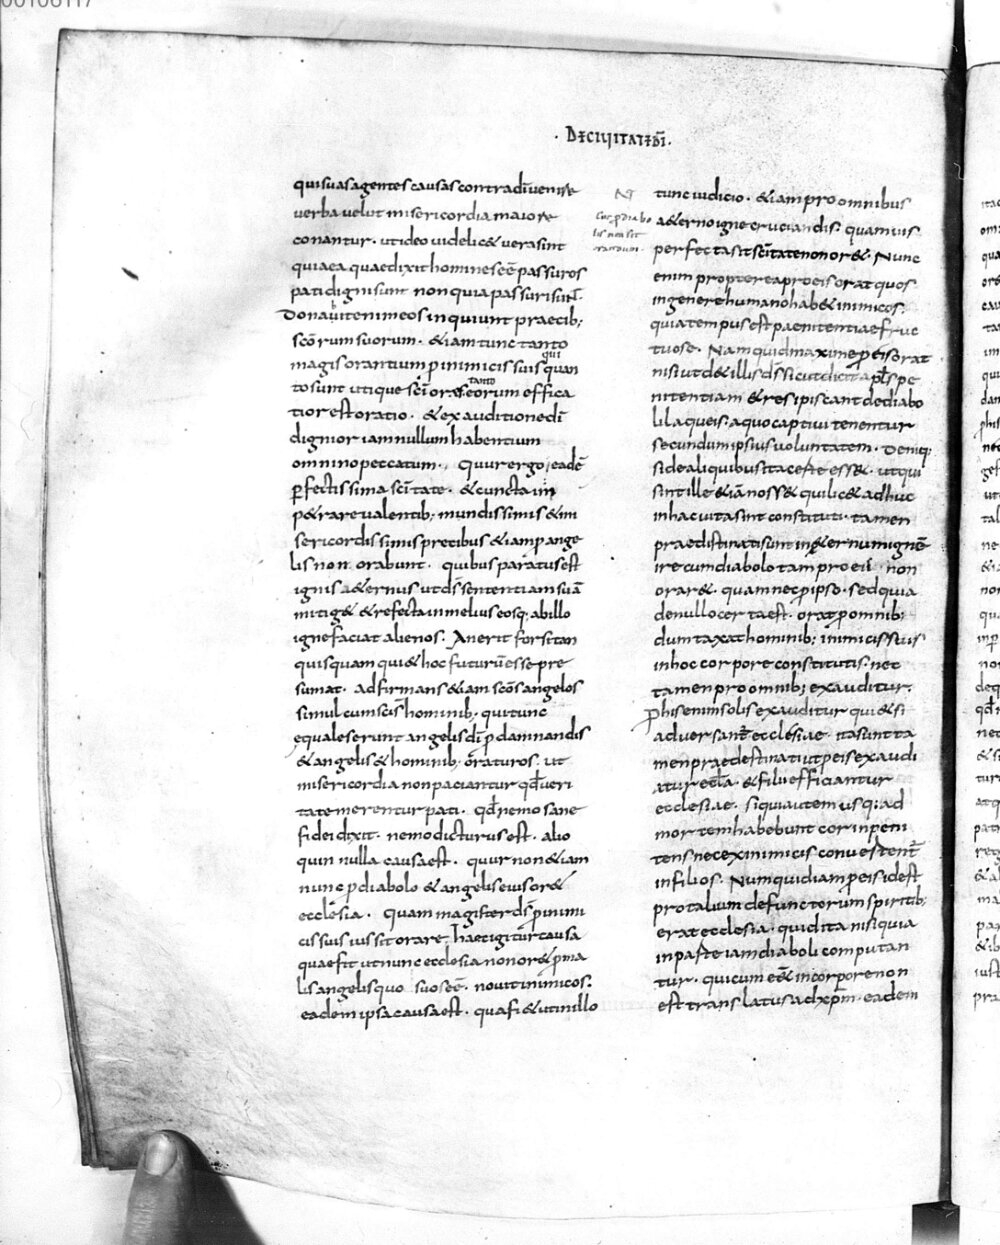 00106117
· DE CIUITATE DĪ ·
qui suas agentes causas contra dī uenire
uerba uelut misericordia maiore
conantur · ut ideo uidelic& uera sint
quia ea quae dixit homines eē passuros
pati digni sunt non quia passuri sunt
Donauit enim eos inquiunt praecib;
scōrum suorum · & iam tunc tanto
magis orantium p inimicis suis quan
to sunt utique scī orum effica
tior est oratio · & exauditione dī
dignior iam nullum habentium
omnino peccatum · Quur ergo eadē
perfectissima scītate · & cuncta im
p&rare ualentib; mundissimis & mi
sericordissimis precibus &iam p ange
lis non orabunt · quibus paratus est
ignis a&ernus ut ds̄ sententiam suā
mitig& & reflecta in melius eosq; ab illo
igne faciat alienos · An erit forsitan
quisquam qui & hoc futurū esse pre
sumat · adfirmans &iam scōs angelos
simul cum scīs hominib; qui tunc
equales erunt angelis dī p damnandis
& angelis & hominib; oraturos · ut
misericordia non patiantur qd̄ ueri
tate merentur pati · qd̄ nemo sane
fidei dixit · nemo dicturus est · alio
quin nulla causa est · quur non &iam
nunc p diabolo & angelis eius or&
ecclesia · Quam magister ds̄ p inimi
cis suis iussit orare · haec igitur causa
qua fit ut nunc ecclesia non or& p ma
lis angelis quo suos eē · nouit inimicos ·
eadem ipsa causa est · qua fi& ut in illo
cur p diabo
lis non sit
orandum ·
tunc iudicio · &iam pro omnibus
a&erno igne cruciandis · quamuis
perfecta sit scītate non or& · Nunc
enim propterea pro eis orat quos
in genere humano hab& inimicos ·
quia tempus est paenitentiae fruc
tuose · Nam quid maxime p eis orat
nisi ut d& illis ds̄ sicut dicit apls̄ pe
nitentiam & resipiscant de diabo
li laqueis · a quo captiui tenentur
secundum ipsius uoluntatem · Deniq;
si de aliquibus ita certe ess& · ut qui
sint ille &iā noss& qui lic& adhuc
in hac uita sint constituti · tamen
praedestinati sunt in a&ernum ignē
ire cum diabolo tam pro eis non
orar& · quam nec p ipso · sed quia
de nullo certa est · orat p omnib;
dum taxat hominib; inimicis suis
in hoc corpore constitutis · nec
tamen pro omnib; exauditur ·
p his enim solis exauditur qui & si
aduersantr̄ ecclesiae · ita sunt ta
men praedestinati ut p eis exaudi
atur eccla · & filii efficiantur
ecclesiae · si qui autem usq; ad
mortem habebunt cor inpeni
tens nec ex inimicis conuertentr̄
in filios · Numquid iam p eis id est
pro talium defunctorum spiritib;
orat ecclesia · quid ita nisi quia
in parte iam diaboli computan
tur · quicum eēt in corpore non
est translatus ad xpm · eadem